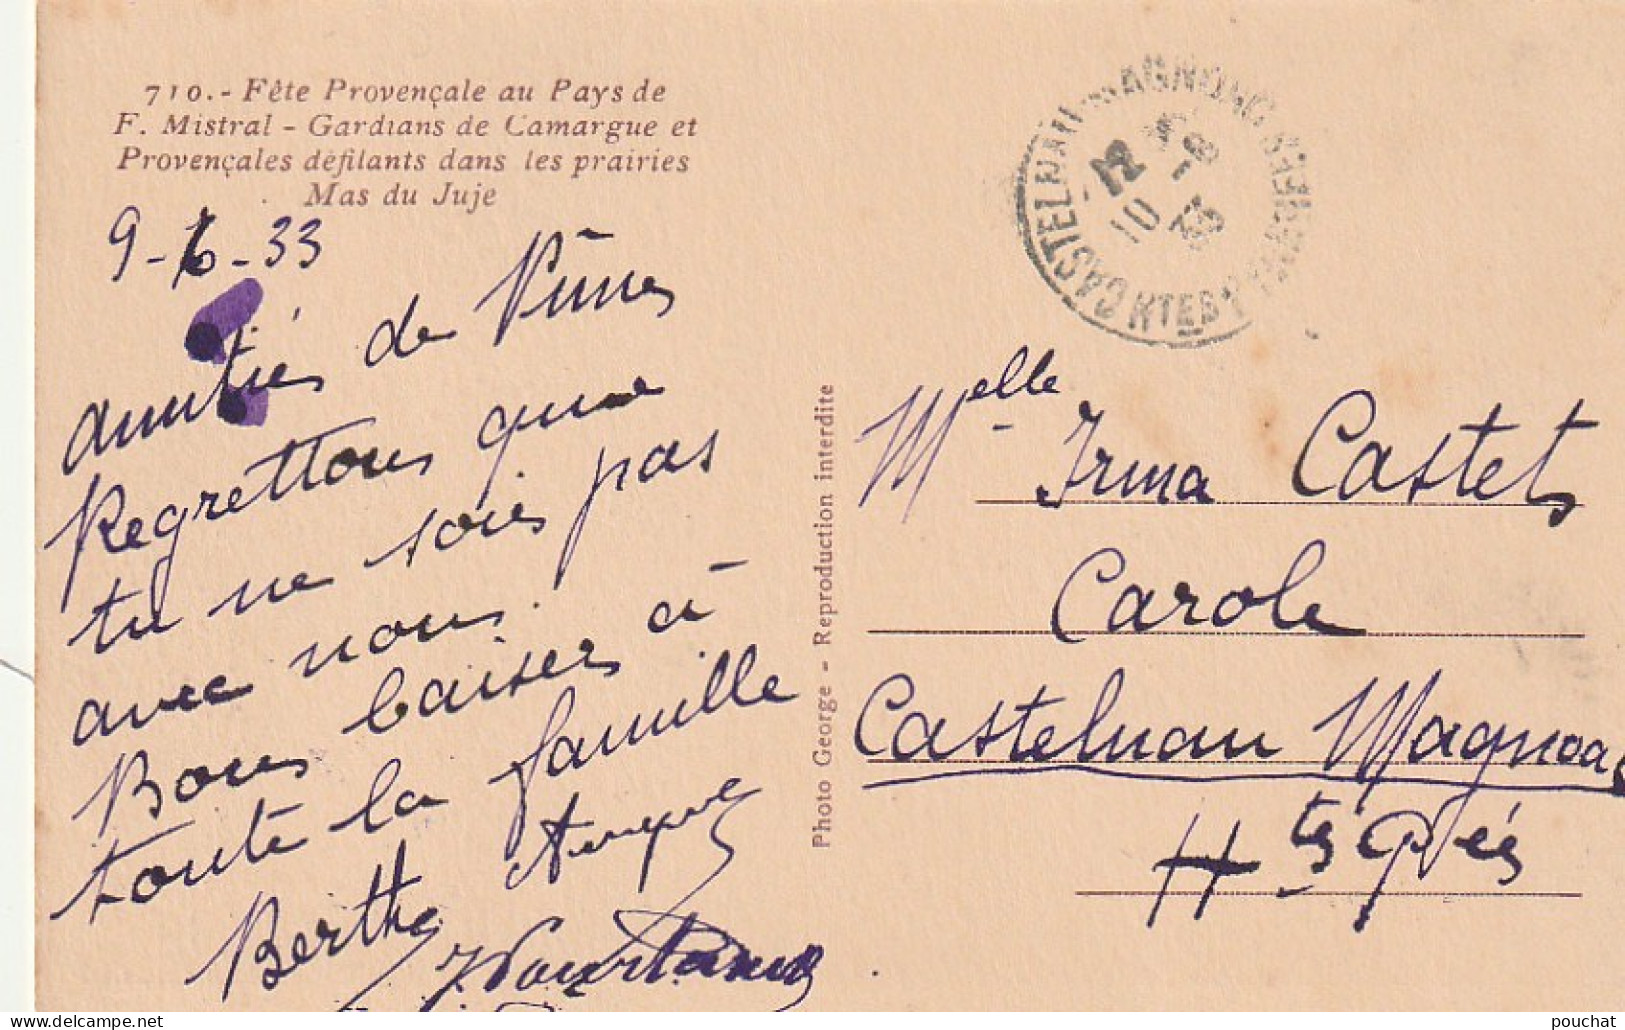 710.- Fête Provençale au Pays de
F. Mistral - Gardians de Camargue et
Provençales défilants dans les prairies
Mas du Juje
9-6-33
amitiés de
Regrettons que
tu ne sois pas
avec nous.
Bons baiser à
toute la famille
Berthe
Photo George - Reproduction interdite
CASTELNAU-MAGNOAC
HTES PYRENEES
12
10 -6
33
Melle Irma Castets
Carole
Castelnau Magnoac
Htes Pées
pouchat